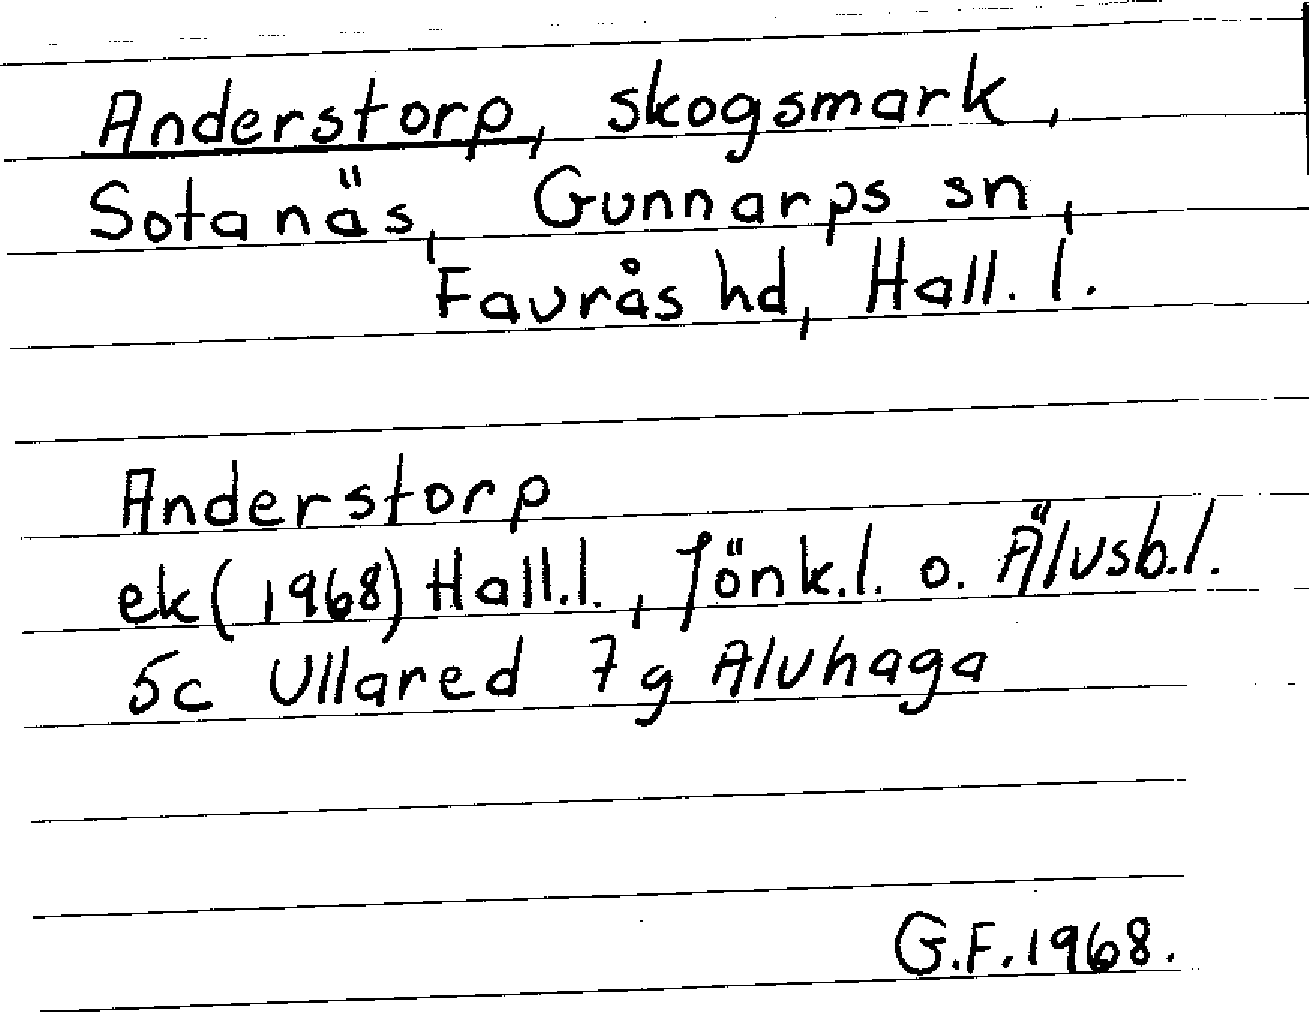 Anderstorp, skogsmark,
Sotanäs, Gunnarps sn,
Favrås hd, Hall. l.
Anderstorp
ek (1968) Hall.l., Jönk.l. o. Älvsb.l.
5c Ullared 7g Alvhaga
G.F. 1968.